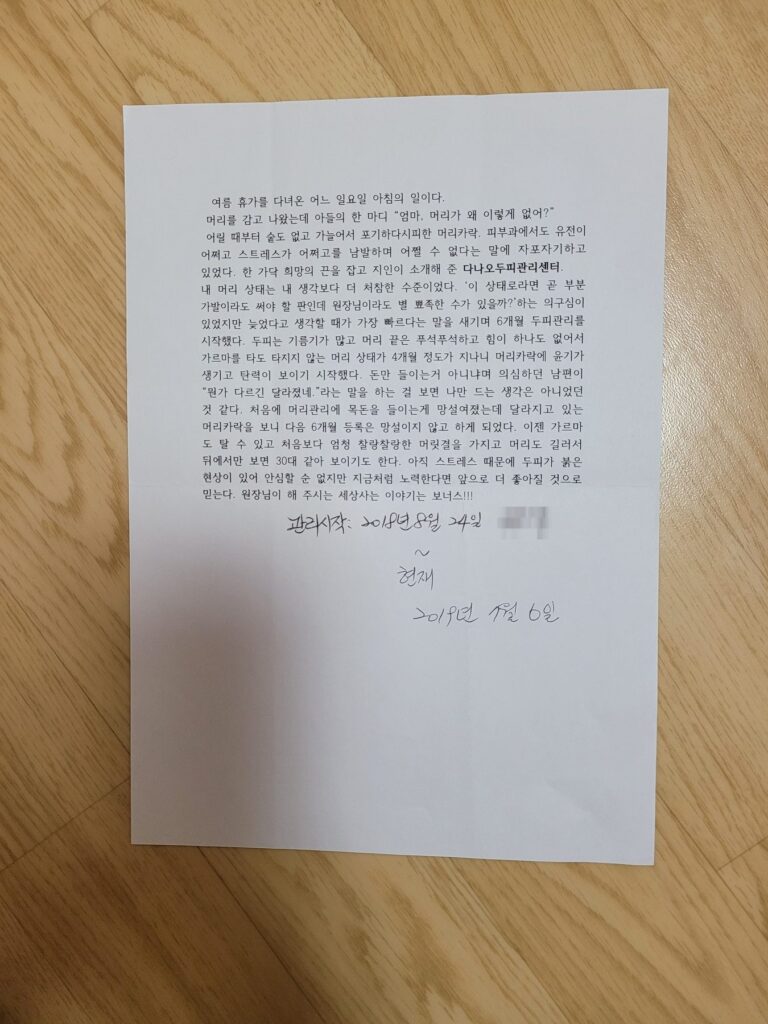 여름 휴가를 다녀온 어느 일요일 아침의 일이다.
머리를 감고 나왔는데 아들의 한 마디 “엄마, 머리가 왜 이렇게 없어?”
어릴 때부터 숱도 없고 가늘어서 포기하다시피한 머리카락. 피부과에서도 유전이
어쩌고 스트레스가 어쩌고를 남발하며 어쩔 수 없다는 말에 자포자기하고
있었다. 한 가닥 희망의 끈을 잡고 지인이 소개해 준 다나오두피관리센터.
내 머리 상태는 내 생각보다 더 처참한 수준이었다. ‘이 상태로라면 곧 부분
가발이라도 써야 할 판인데 원장님이라도 별 뾰족한 수가 있을까?’하는 의구심이
있었지만 늦었다고 생각할 때가 가장 빠르다는 말을 새기며 6개월 두피관리를
시작했다. 두피는 기름기가 많고 머리 끝은 푸석푸석하고 힘이 하나도 없어서
가르마를 타도 타지지 않는 머리 상태가 4개월 정도가 지나니 머리카락에 윤기가
생기고 탄력이 보이기 시작했다. 돈만 들이는거 아니냐며 의심하던 남편이
“뭔가 다르긴 달라졌네.”라는 말을 하는 걸 보면 나만 드는 생각은 아니었던
것 같다. 처음에 머리관리에 목돈을 들이는게 망설여졌는데 달라지고 있는
머리카락을 보니 다음 6개월 등록은 망설이지 않고 하게 되었다. 이젠 가르마
도 탈 수 있고 처음보다 엄청 찰랑찰랑한 머릿결을 가지고 머리도 길러서
뒤에서만 보면 30대 같아 보이기도 한다. 아직 스트레스 때문에 두피가 붉은
현상이 있어 안심할 순 없지만 지금처럼 노력한다면 앞으로 더 좋아질 것으로
믿는다. 원장님이 해 주시는 세상사는 이야기는 보너스!!!
관리시작: 2018년 8월 24일
~
현재
2019년 1월 6일